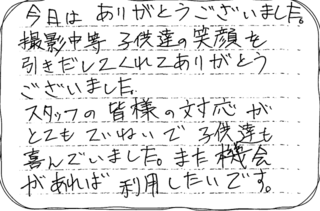 今日は ありがとうございました。
撮影中等 子供達の笑顔を
引きだしてくれてありがとう
ございました。
スタッフの皆様の対応が
とても ていねいで 子供達も
喜んでいました。また 機会
があれば 利用したいです。